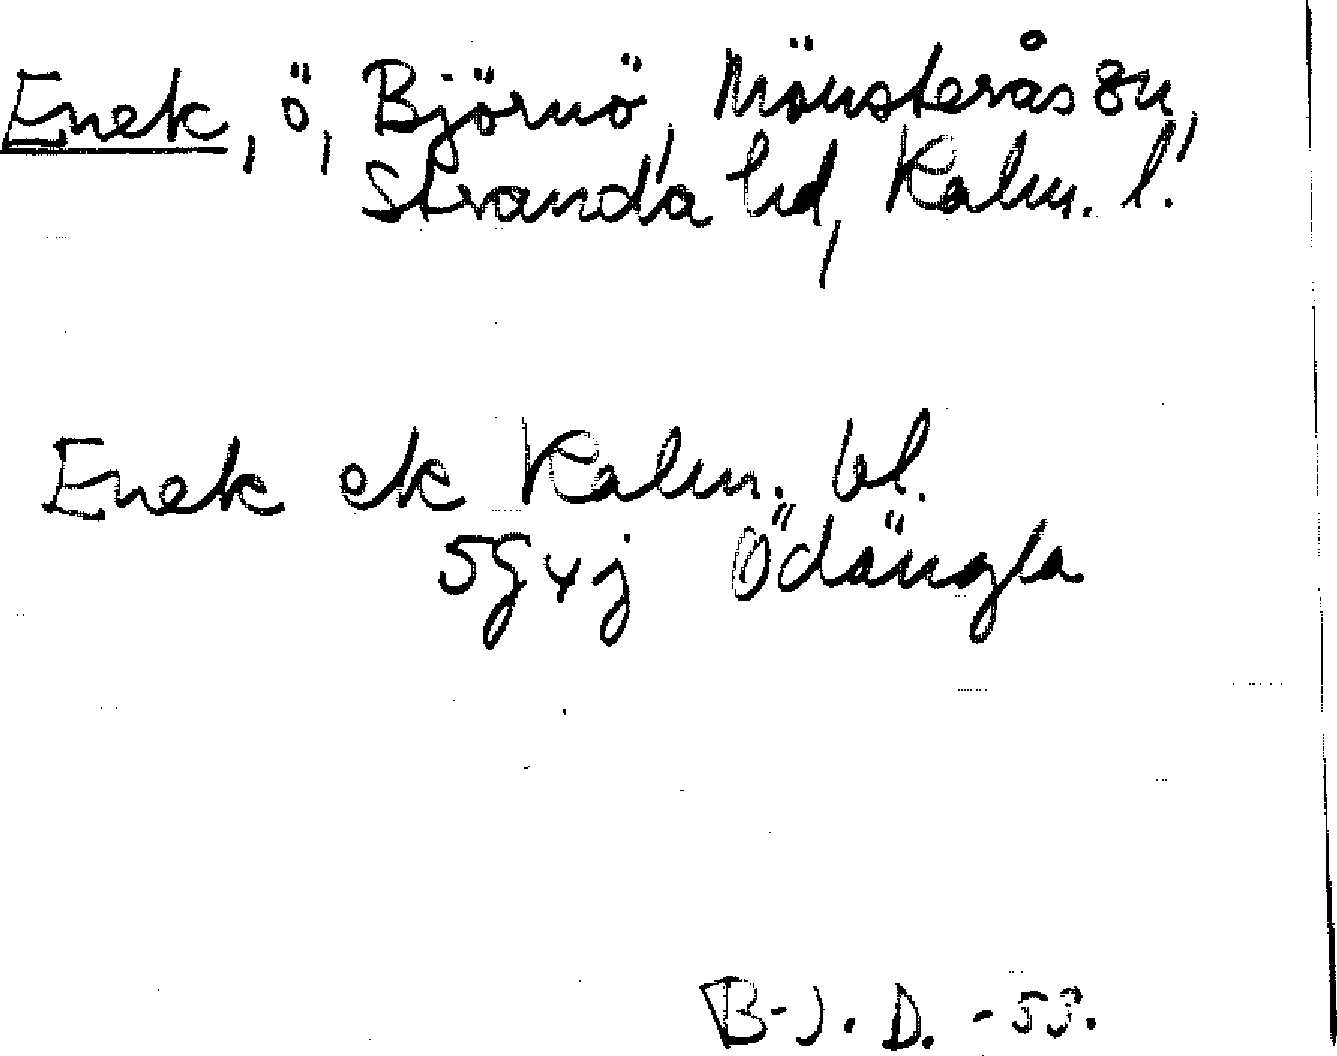 Enek, ö, Björnö, Mönsterås sn,
Stranda hd, Kalm. l.
Enek ek Kalm. bl.
5G4j Ödängla
B-J. D. -53.